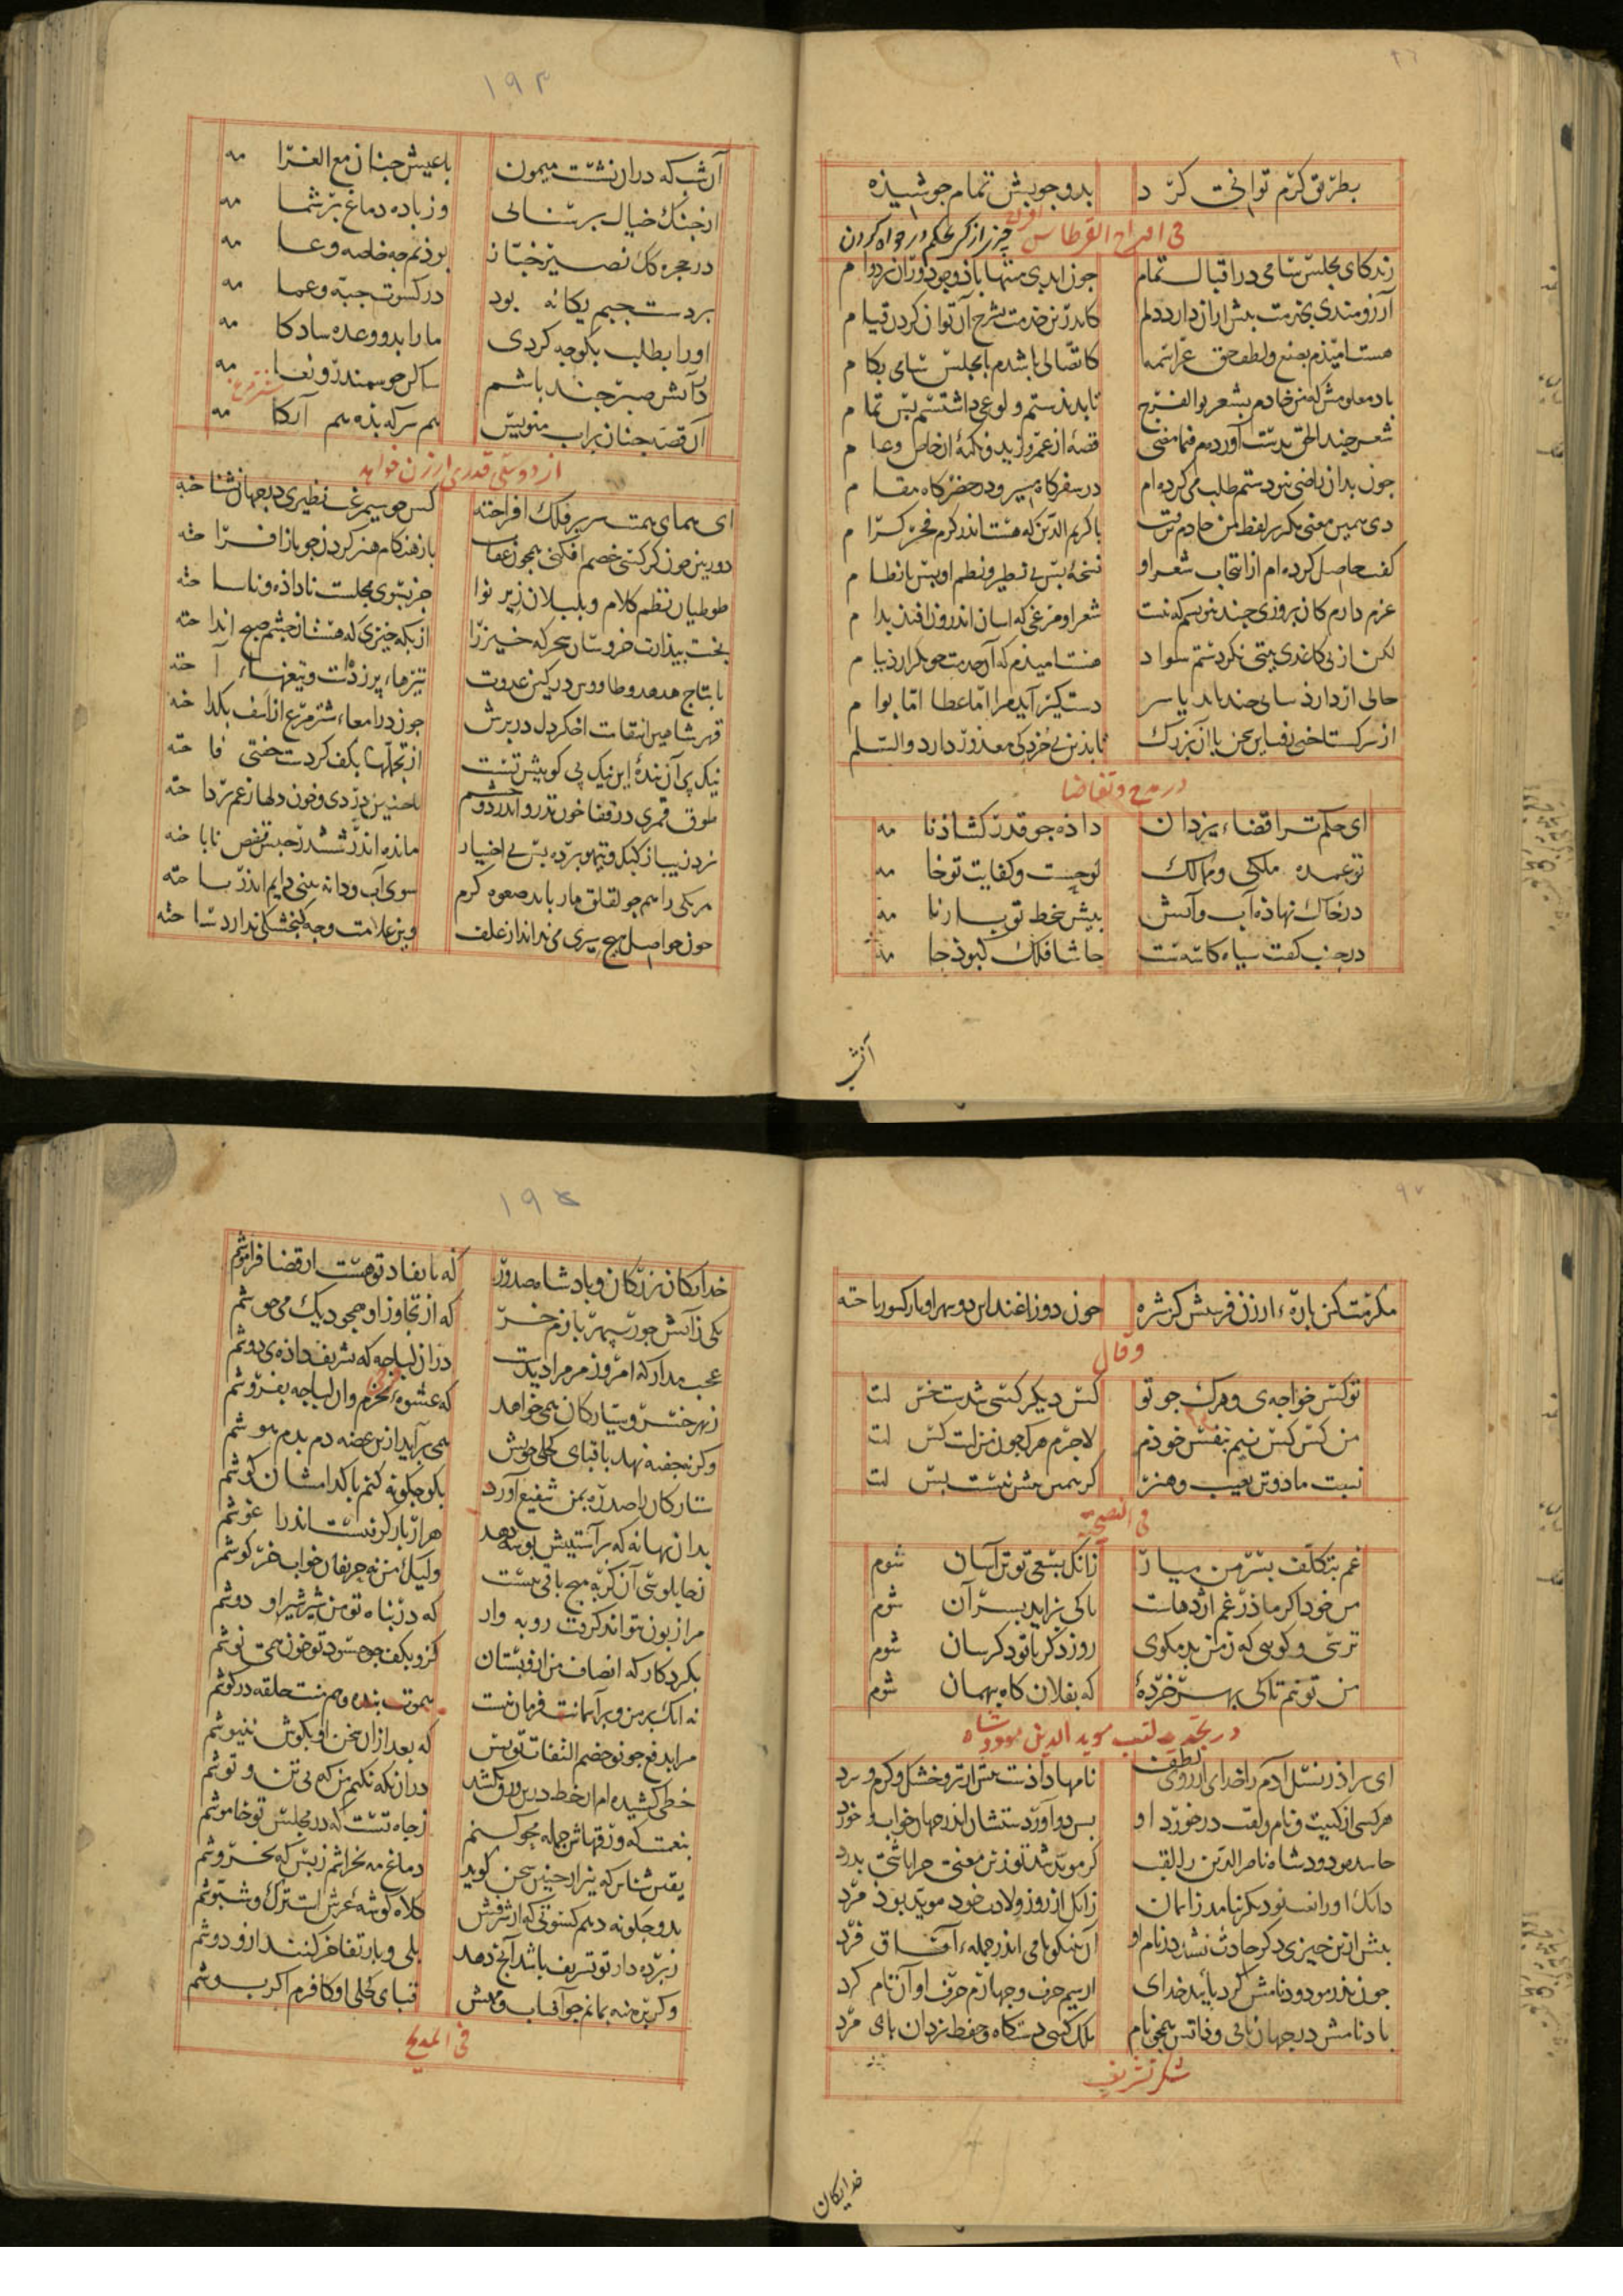 بطریق کرم توانی کرد    بدو جوبش تمام جوشیذه
زندکانی مجلس سامی در اقبال تمام    جون ابدی منتها باذ و جودوران بردوام
آرزومندی بخدمت بیش ازان دارد دلم    کاندرین خدمت بشرح آن توان کردن قیام
هست امیذم بصنع و لطف حق عز اسمه    کاتصالی باشدم با مجلس سامی بکام
باد معلومش که من خادم بشعر بوالفرج    تا بدیدستم ولوعی داشتستم بس تمام
شعر جند الحق بدست آورده‌ام فیما مضی    قصه از عمرو و زید و نکته از خاص و عام
جون بدان راضی نبودستم طلب می‌کرده‌ام    در سفر کاه مسیر و در حضر کاه مقام
دی همین معنی مکر بر لفظ من خادم برفت    با کریم الدین که هست اندر کرم فخر کرام
کفت حاصل کرده‌ام از انتخاب شعر او    نسخهٔ بس بی نظیر و نظم او بس با نظام
عزم دارم کان بروزی جند بنویسم که نیست    شعر او مرغی که اسان اندر افتد بدام
لکن از بی کاغذی بیتی نکردستم سواد    هست امیذم که آن خدمت جو بکزارد پیام
حالی ار دارذ سامی جند باید یا سر    دستکیر آید مرا اما عطا اما بوام
از سر کستاخی رفت این سخن با آن بزرک    تا بذین بی خردکی معذور دارد والسلام
در مدح و تقاضا
ای حکم ترا قضاء یزدان    داذه جو قدر کشاذنامه
تو عمده ملکی و ممالک    لوحیست و کفایت تو خامه
در خاک نهاذه آب و آتش    بیش سخط تو بارنامه
در جنب کفت سیاه کاسه‌ست    حاشا فلک کبوذ جامه
آنشب
۱۹۳
آن شب که دران نشست میمون    با عیش جنان مع الغرامه
از جنک خیال بر بنانی    وز باده دماغ بر شمامه
در حجره کک نصیر خباز    بوذیم جه خاصه و عامه
بر دست جبیم یکانه بود    در کسوت جبه و عمامه
او را بطلب بکو جه کردی    ما را بدو وعده ساد کامه
در آتش صبر جند باشم    ساکن جو سمندر و نعامه
آن قصه جنان بر آب منویس    هم سرکه بذه هم آبکامه
از دوستی قدری ارزن خواهد
ای همای همتت سر بر فلک افراخته    کس جو سیمرغت نظیری در جهان نشناخته
طوطیان نظم کلام و بلبلان زیر نوا    جز بسوی مجلست ناداذه و ناساخته
بخت بیذارت خروسان سحرکه خیز را    از بکه خیزی که هستشان جشم صبح انداخته
قهر شاهین انتقامت اخکر دل در برش    جون در امعاء شترمرغ از اسف بکداخته
طوق قمری در قفا خون تذرو اندر دو جشم
نرد زیبا از کبک و تیهو برده بس بی اختیار    مانده اندر ششدر حبس قفص ناباخته
هر یکی را هم جو لقلق مار باید صعوه کرم    سوی آب و دانه بینی دایم اندر تاخته
جون حواصل هیج سیری می نداند از علف    وین علامت وجه کنجشکی ندارد ساخته
۹۷
مکرمت کن پارهٔ ارزن فرستش کز شره    جون دو زاغند این دو بهر او بارکسوریاخته
و قال
تو کس خواجه‌ی و هرک جو تو    کس دیکر کسی شدست خس است
من کس کس نیم بنفس خوذم    لاجرم هرکه جون منست کس است
نسبت ما دو تن بعیب و هنر    کر همین بیش نیست بس است
فی النصیحة
غم بتکلف بسر من میار    زانک بسعی تو تن آسان شوم
من خود اکر ماذر غم اژدهاست    تا کی بزاید بسر آن شوم
ترسی و کویی که ز من بد مکوی    روز دکر با تو دکرسان شوم
من تو نیم تا کی بهر خردهٔ    که بفلان کاه ببهمان شوم
در تجدید لقب موید الدین مودود شاه
ای براذر نسل آدم را خدای از روی لطف    نامها داذست بیش از تر و خشک و کرم و سرد
هرکسی از کنیت و نام و لقب در خورد او    بس درآوردستشان اندر جهان خواب و خورد
حاسد مودود شاه ناصر الدین را لقب    کر موید شد تو زین معنی جرا باشی بدرد
دانک او را نفسنود دیکر نامد ز آسمان    زانک از روز ولادت خود موید بوذ مرد
بیش ازین خیزی دکر حادث نشد در نام او    آن بنیکونامی اندر جمله آفاق فرد
جون پذر مودود نامش کرد تایید خدای    از سیم حرف و جهارم حرف او آن نام کرد
باد نامش در جهان باقی و ذاتش همجو نام    ملک کسی دستکاه و حفظ یزدان پای مرد
شکر تشریف
خدایکان
۱۹۴
خدایکان بزرکان و پادشاه صدور    که با نفاد تو هست از قضا فراموشم
یکی ز آتش جور سپهر باز خر    که از تجاوز او همجو دیک می‌جوشم
عجب مدار که امروز مر مرا دیدست    دران لباجه که تشریف داذه‌ی دوشم
ز بهر خنر و ستارکان همی خواهد    که عشوه بخرم وان لباجه بفروشم
وکرنه جفنه نهد با قبای کحلی خویش    همی برآید ازین غصه دم بدم هوشم
ستارکان را صد ره بمن شفیع آورد    بکو جکونه کنم با کدامشان کوشم
بدان بهانه که بر آستینش بوسه دهد    هزار بار کرفتست اندر اغوشم
ز جابلوسی آن کربه هیج باقی نیست    ولیک من نه حریفان خواب خرکوشم
مرا زبون نتواند کرفت روبه وار    که در بناه تو من شیر شیر او دوشم
بکرد کار که انصاف من ازو بستان    کزو بکف جو حسود تو خون همی نوشم
نه انک بر من و بر آسمانت فرمان نیست    همو ت بنده و هم منت حلقه در کوشم
مرا بدفع جو تو خصم التفات تو بس    که بعد ازان سخن او بکوش ننیوشم
خطی کشیده‌ام از خط در برو نکشد    دران نکه نکنم من که بی تن و توشم
بنعمتت که ورقهاش جمله محو کنم    ز جاه تست که در مجلس تو خاموشم
یقین شناس که بیزار جنین سخن کوید    دماغ مه بخراشم ز بس که بخروشم
بدو جکونه دهم کسوتی که از شرفش    کلاه کوشهٔ عرش است ترک و شبپوشم
ز برده دار تو تشریف باشد آنج دهد    بلی و بار تفاخر کنند ازو دوشم
وکر برهنه بمانم جو آفتاب و مهش    قبای کحلی او کافرم اکر پوشم
فی المدیح